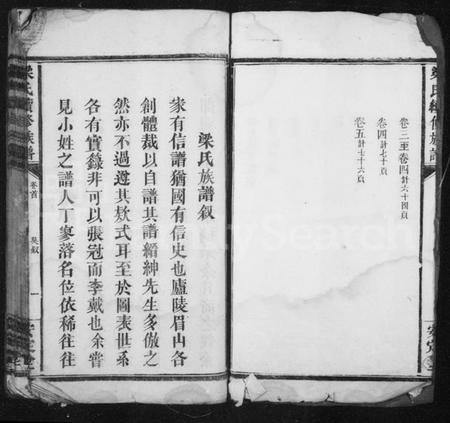 卷三至卷四計六十四頁
卷四計七十頁
卷五計七十六頁
梁氏族譜敘
家有信譜猶國有信史也廬陵眉山各
創體裁以自譜其譜縉紳先生多倣之
然亦不過遵其欵式耳至於圖表世系
各有實錄非可以張冠而李戴也余嘗
見小姓之譜人丁寥落名位依稀往往
梁氏續修族譜
卷首
吳敘
一
安定堂